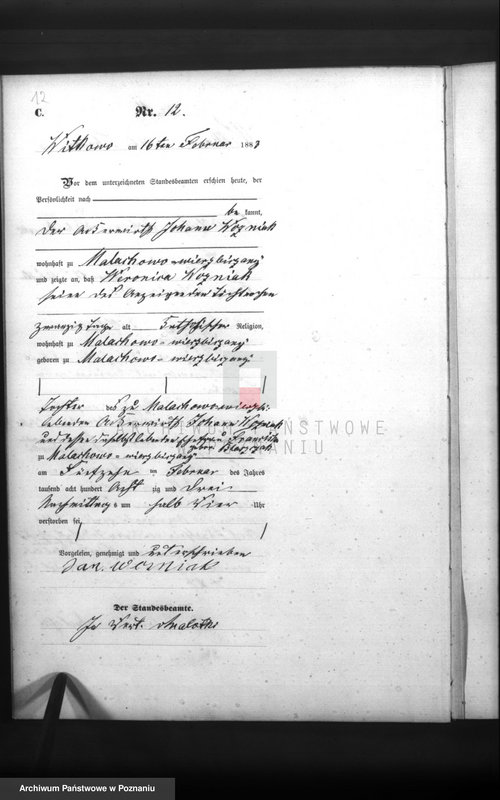 12
C.
Nr. 12.
Witkowo am 16ten Februar 1883
Vor dem unterzeichneten Standesbeamten erschien heute, der
Persönlichkeit nach
be kannt,
der Ackerwirth Johann Wozniak
wohnhaft zu Malachowo-wierzbiczany
und zeigte an, daß Veronica Wozniak
seine des Anzeigenden Töchterchen
zwanzig Tage alt katholischer Religion,
wohnhaft zu Malachowo-wierzbiczany
geboren zu Malachowo-wierzbiczany
Tochter des zu Malachowo-wierzbi-
lebenden Ackerwirth Johann Wozniak
und dessen daselbst lebenden Ehefrau
geborne
zu Malachowo-wierzbiczany
am Fünfzehn ten Februar des Jahres
tausend acht hundert Acht zig und drei
Nachmittags um halb Vier Uhr
verstorben sei,
Vorgelesen, genehmigt und unterschrieben
Jan Wozniak
Der Standesbeamte.
In Vert.
ARCHIWUM PAŃSTWOWE
W POZNANIU
Archiwum Państwowe w Poznaniu